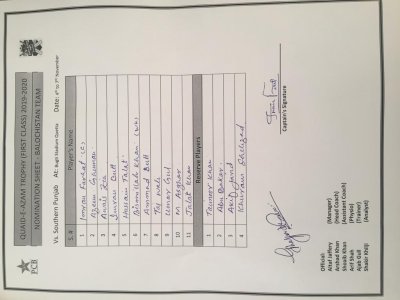 PCB
QUAID-E-AZAM TROPHY (FIRST CLASS) 2019-2020
NOMINATION SHEET - BALOCHISTAN TEAM
Vs. Southern Punjab At: Bugti Stadium Quetta Date: 4th to 7th November
S. # Player Name
1 Imran Farhat (C)
2 Azeem Ghumman
3 Awais Zia
4 Imran Butt
5 Hussain Talat
6 Bismillah Khan (WK)
7 Ammad Butt
8 Taj Wali
9 Umar Gul
10 M. Asghar
11 Jalat Khan
Reserve Players
1 Taimoor Khan
2 Abu Bakar
3 Akif Javed
4 Khurram Shahzad
Captain's Signature
Official:
Altaf Jaffery (Manager)
Arshad Khan (Head Coach)
Shoaib Khan (Assistant Coach)
Arif Shah (Physio)
Ajab Gull (Trainer)
Shakir Khilji (Analyst)